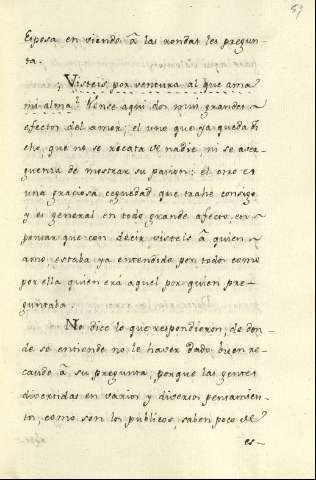 Esposa en viendo â las rondas les pregun-
ta.
¿ Visteis por ventura al que ama
mi alma? Vense aqui dos mui grandes
efectos del amor; el uno que ya queda di-
cho, que no se recata de nadie, ni se aver-
guenza de mostrar su pasion; el otro es
una graciosa ceguedad que trahe consigo
y es general en todo grande afecto, en
pensar que con decir visteis â quien
amo estaba ya entendido por todos como
por ella quien erà aquel por quien pre-
guntaba.
No dice lo que respondieron, de don-
de se entiende no le haver dado buen re-
caudo â su pregunta, porque las gentes
divertidas en varios y diversos pensamien-
tos, como son los públicos, saben poco de
es-